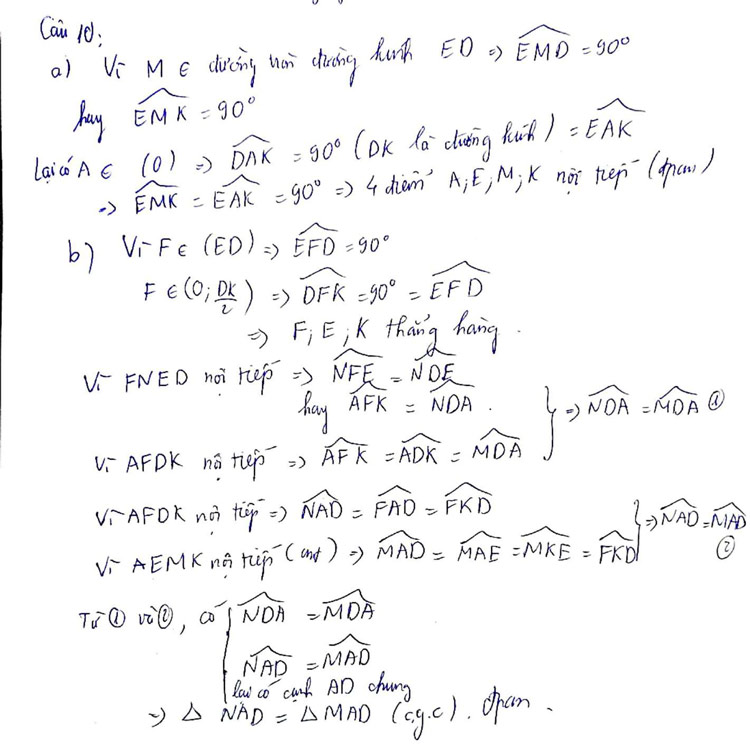 Câu 10:
a) Vì M ∈ đường tròn đường kính ED => \widehat{EMD} = 90°
hay \widehat{EMK} = 90°
Lại có A ∈ (O) => \widehat{DAK} = 90° (DK là đường kính) = \widehat{EAK}
=> \widehat{EMK} = \widehat{EAK} = 90° => 4 điểm A; E; M; K nội tiếp (đpcm)
b) Vì F ∈ (ED) => \widehat{EFD} = 90°
F ∈ (O; \frac{DK}{2}) => \widehat{DFK} = 90° = \widehat{EFD}
=> F; E; K thẳng hàng.
Vì FNED nội tiếp => \widehat{NFE} = \widehat{NDE}
hay \widehat{AFK} = \widehat{NDA}. } => \widehat{NDA} = \widehat{MDA} ①
Vì AFDK nội tiếp => \widehat{AFK} = \widehat{ADK} = \widehat{MDA}
Vì AFDK nội tiếp => \widehat{NAD} = \widehat{FAD} = \widehat{FKD} } => \widehat{NAD} = \widehat{MAD} ②
Vì AEMK nội tiếp (cmt) => \widehat{MAD} = \widehat{MAE} = \widehat{MKE} = \widehat{FKD}
Từ ① và ②, có { \widehat{NDA} = \widehat{MDA}
\widehat{NAD} = \widehat{MAD}
lại có cạnh AD chung
=> Δ NAD = Δ MAD (c.g.c). đpcm.